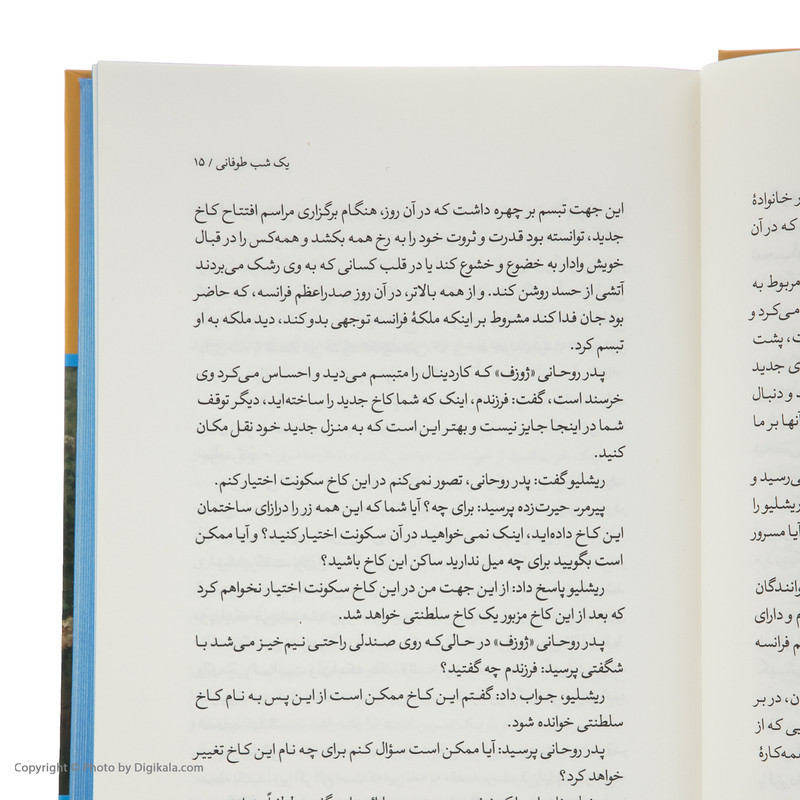 یک شب طوفانی / ۱۵
این جهت تبسم بر چهره داشت که در آن روز، هنگام برگزاری مراسم افتتاح کاخ
جدید، توانسته بود قدرت و ثروت خود را به رخ همه بکشد و همه‌کس را در قبال
خویش وادار به خضوع و خشوع کند یا در قلب کسانی که به وی رشک می‌بردند
آتشی از حسد روشن کند. و از همه بالاتر، در آن روز صدراعظم فرانسه، که حاضر
بود جان فدا کند مشروط بر اینکه ملکهٔ فرانسه توجهی بدو کند، دید ملکه به او
تبسم کرد.
پدر روحانی «ژوزف» که کاردینال را متبسم می‌دید و احساس می‌کرد وی
خرسند است، گفت: فرزندم، اینک که شما کاخ جدید را ساخته‌اید، دیگر توقف
شما در اینجا جایز نیست و بهتر این است که به منزل جدید خود نقل مکان
کنید.
ریشلیو گفت: پدر روحانی، تصور نمی‌کنم در این کاخ سکونت اختیار کنم.
پیرمرد حیرت‌زده پرسید: برای چه؟ آیا شما که این همه زر را درازای ساختمان
این کاخ داده‌اید، اینک نمی‌خواهید در آن سکونت اختیار کنید؟ و آیا ممکن
است بگویید برای چه میل ندارید ساکن این کاخ باشید؟
ریشلیو پاسخ داد: از این جهت من در این کاخ سکونت اختیار نخواهم کرد
که بعد از این کاخ مزبور یک کاخ سلطنتی خواهد شد.
پدر روحانی «ژوزف» در حالی‌که روی صندلی راحتی نیم‌خیز می‌شد با
شگفتی پرسید: فرزندم چه گفتید؟
ریشلیو، جواب داد: گفتم این کاخ ممکن است از این پس به نام کاخ
سلطنتی خوانده شود.
پدر روحانی پرسید: آیا ممکن است سؤال کنم برای چه نام این کاخ تغییر
خواهد کرد؟
ر خانوادهٔ
که در آن
مربوط به
می‌کرد و
پشت
ی جدید
د و دنبال
آنها بر ما
ی‌رسید و
ریشلیو را
آیا مسرور
وانندگان
م و دارای
م فرانسه
ن، در بر
یی که از
همه‌کارهٔ
Copyright © Photo by Digikala.com